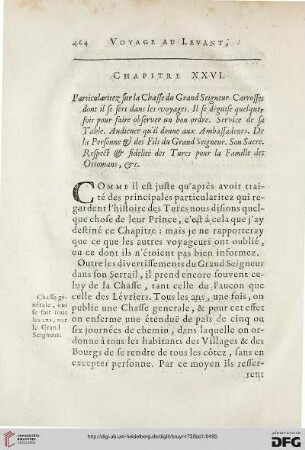 464 VOYAGE AU LEVANT,
CHAPITRE XXVI.
Particularitez sur la Chasse du Grand Seigneur. Carrosses
dont il se sert dans les voyages. Il se déguise quelque-
fois pour faire observer un bon ordre. Service de sa
Table. Audience qu'il donne aux Ambassadeurs. De
la Personne & des Fils du Grand Seigneur. Son Sacre.
Respect & fidelité des Turcs pour la Famille des
Ottomans, &c.
COMME il est juste qu'après avoir trai-
té des principales particularitez qui re-
gardent l'histoire des Turcs nous disions quel-
que chose de leur Prince, c'est à cela que j'ay
destiné ce Chapitre: mais je ne rapporteray
que ce que les autres voyageurs ont oublié,
ou dont ils n'étoient pas bien informez.
Outre les divertissements du Grand Seigneur
dans son Serrail, il prend encore souvent ce-
luy de la Chasse, tant celle du Faucon que
celle des Lévriers. Tous les ans, une fois, on
publie une Chasse generale, & pour cet effet
on enferme une étenduë de païs de cinq ou
six journées de chemin, dans laquelle on or-
donne à tous les habitants des Villages & des
Bourgs de se rendre de tous les côtez, sans en
excepter personne. Par ce moyen ils resser-
rent
Chasse gé-
nérale, qui
se fait tous
les ans, par
le Grand
Seigneur.
http://digi.ub.uni-heidelberg.de/diglit/bruy1728bd1/0490
© Universitätsbibliothek Heidelberg
gefördert durch die
DFG